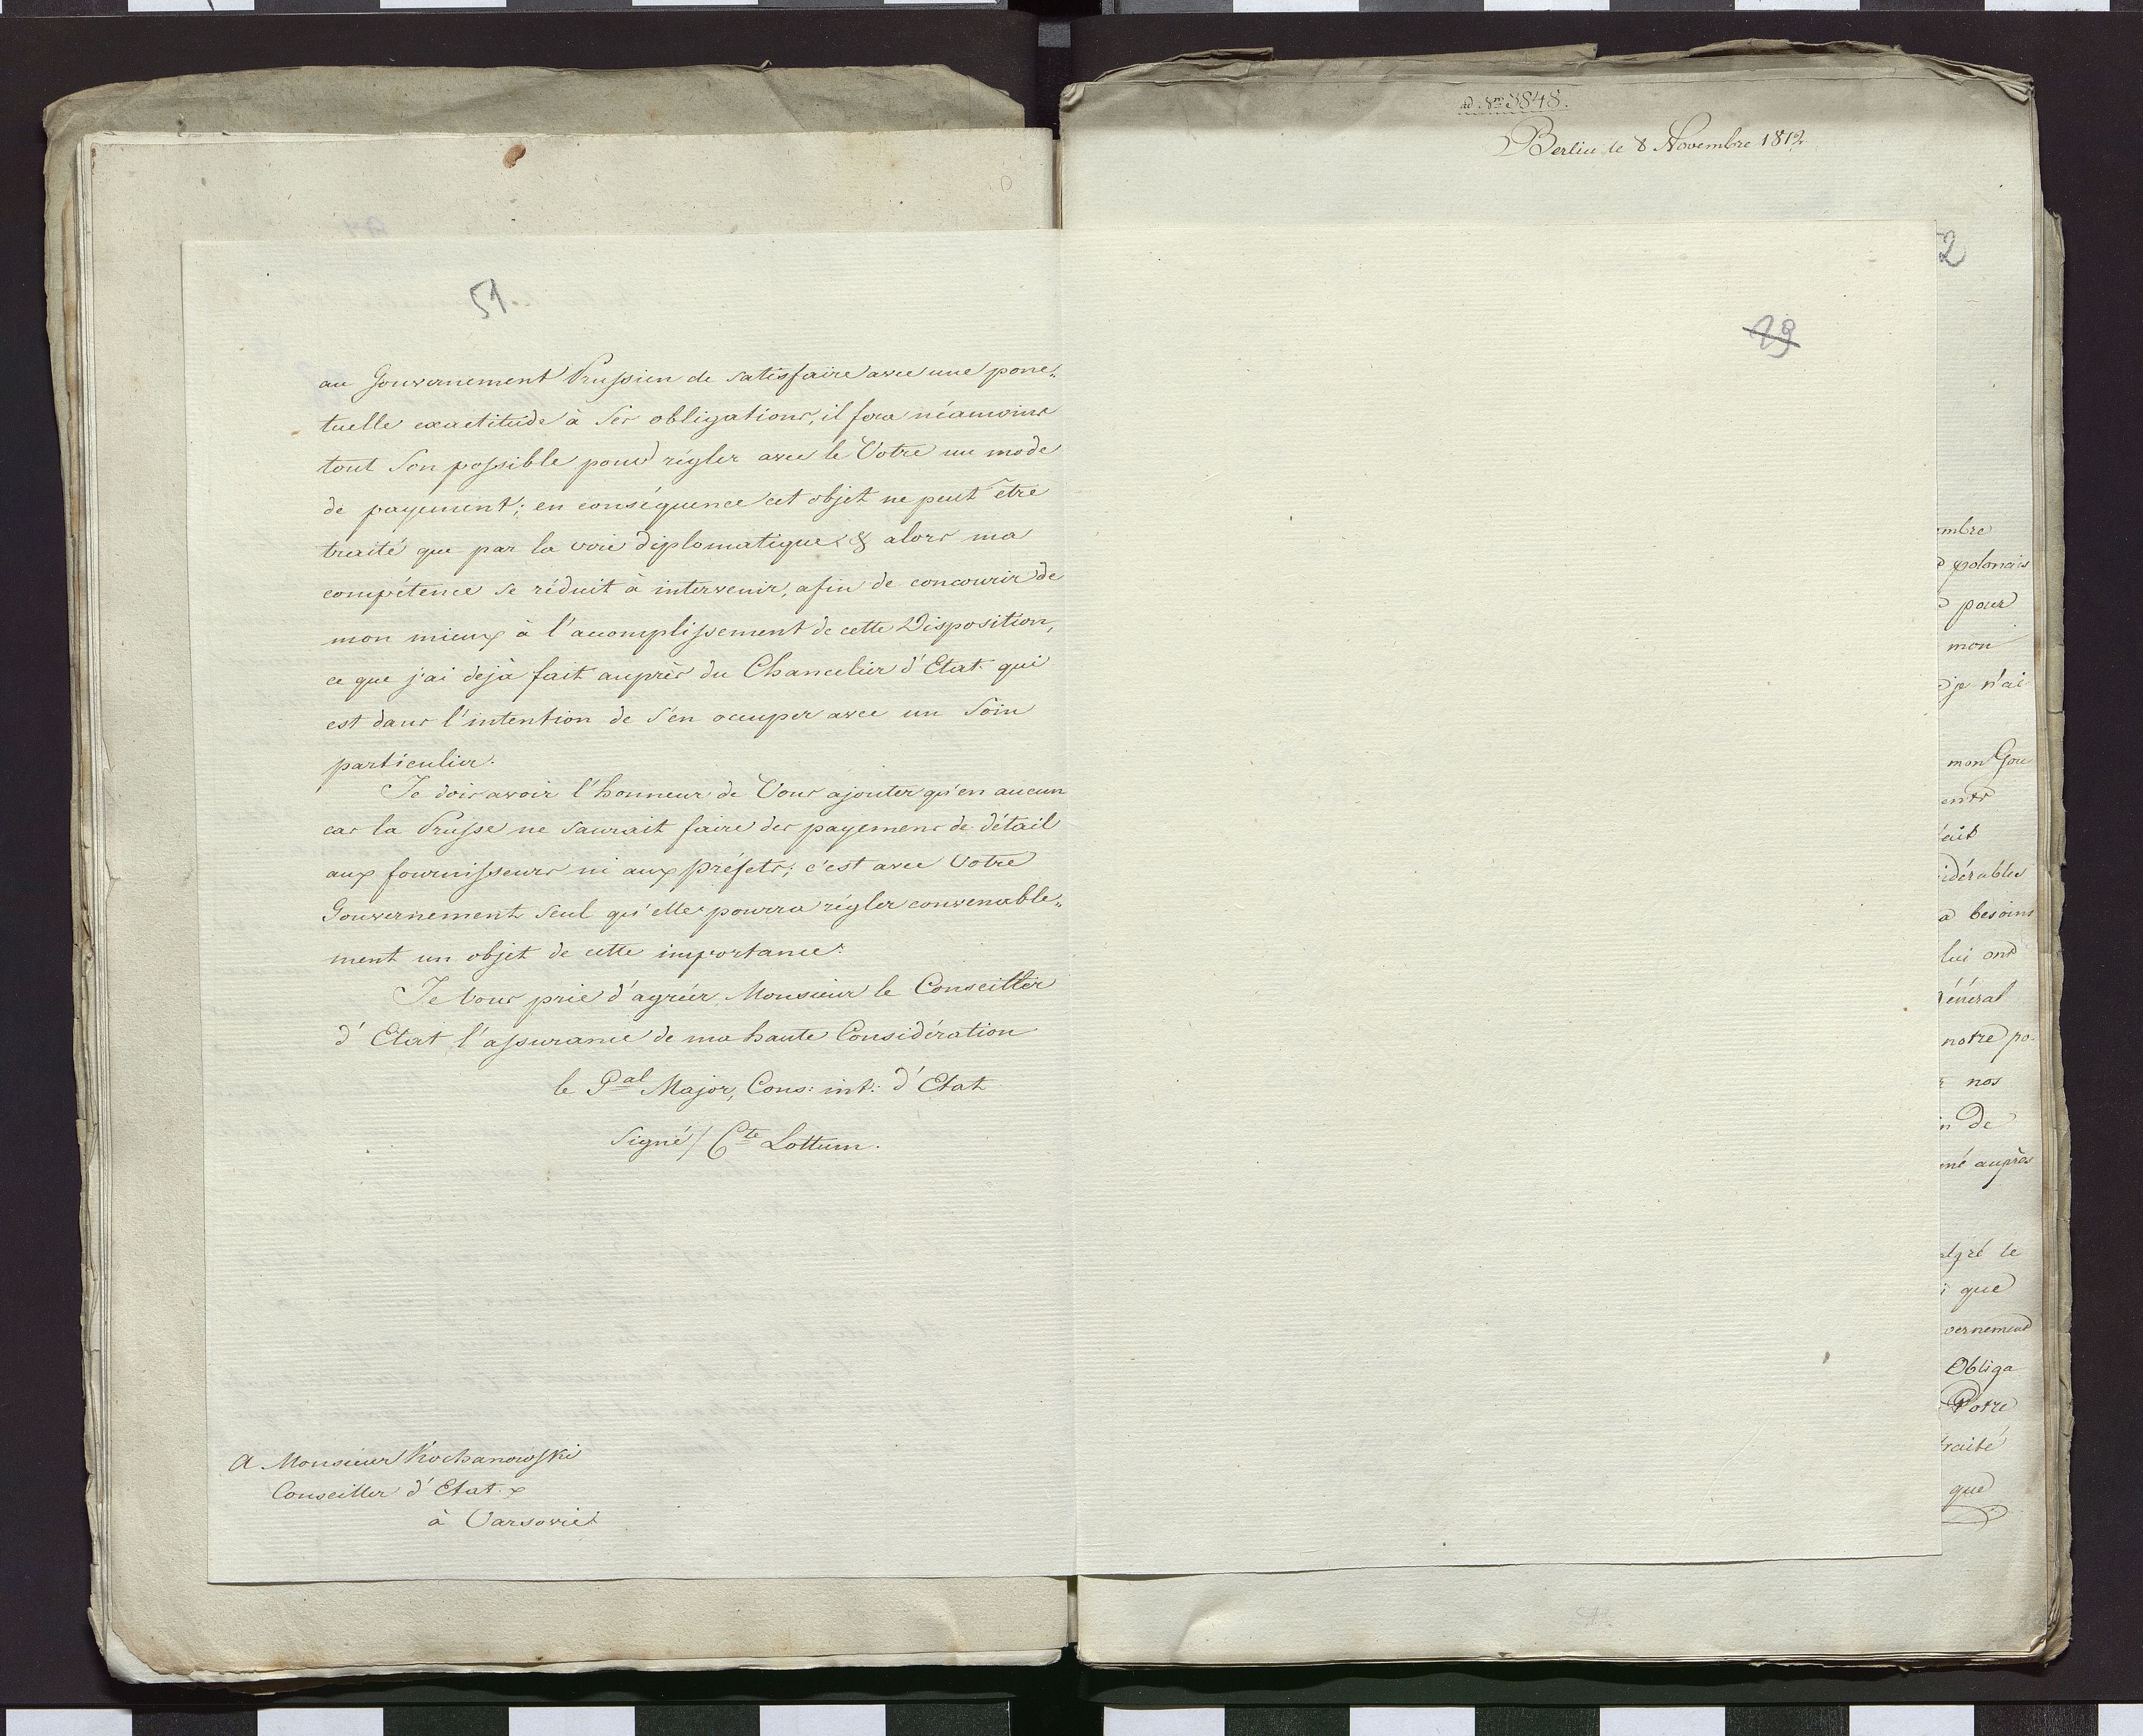 51
au Gouvernement Prussien de satisfaire avec une ponc„
tuelle exactitude à Ses obligations, il fera néamoins
tout Son possible pour régler avec le Votre un mode
de payement; en conséquence cet objet ne peut être
traité que par la voie diplomatique & alors ma
compétence se réduit à intervenir, afin de concourir de
mon mieux à l'acomplissement de cette Disposition,
ce que j'ai dejà fait auprès du Chancelier d'Etat qui
est dans l'intention de s'en occuper avec un Soin
particulier.
Je dois avoir l'honneur de Vous ajouter qu'en aucun
cas la Prusse ne saurait faire des payemens de détail
aux fournisseurs ni aux préfets; c'est avec Votre
Gouvernement Seul qu'elle pourra régler convenable„
ment un objet de cette importance.
Je Vous prie d'agréer, Monsieur le Conseiller
d'Etat l'assurance de ma haute Considération
le Gal Major, Cons: int: d'Etat
signé/ Cte Lottum.
A Monsieur Kochanowski
Conseiller d'Etat
à Varsovie
3848.
Berlin le 8 Novembre 1812
2
embre
polonais
pour
mon
je n'ai
mon Gou
ents
fait
idérables
a besoins
lui ont
Général
notre po-
nos
de
mé auprès
algré le
que
vernement
Obliga
Votre
traité
que